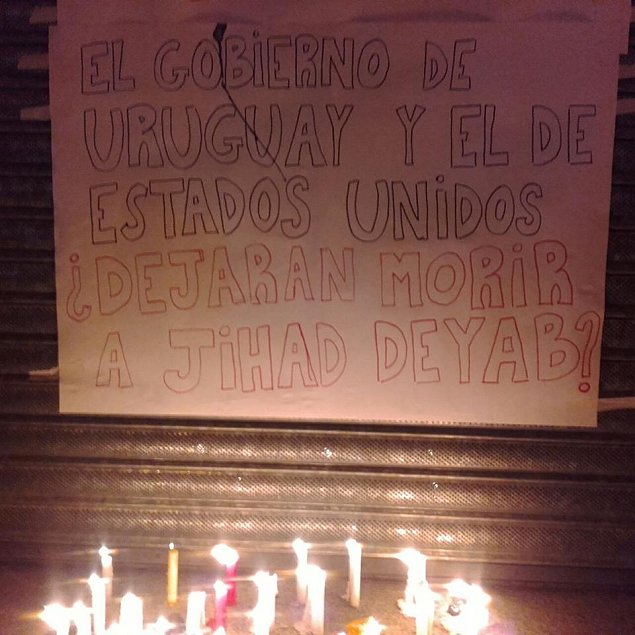 EL GOBiERNO DE
URUGUAY Y EL DE
ESTADOS UNiDOS
¿DEJARAN MORiR
A JiHAD DEYAB?